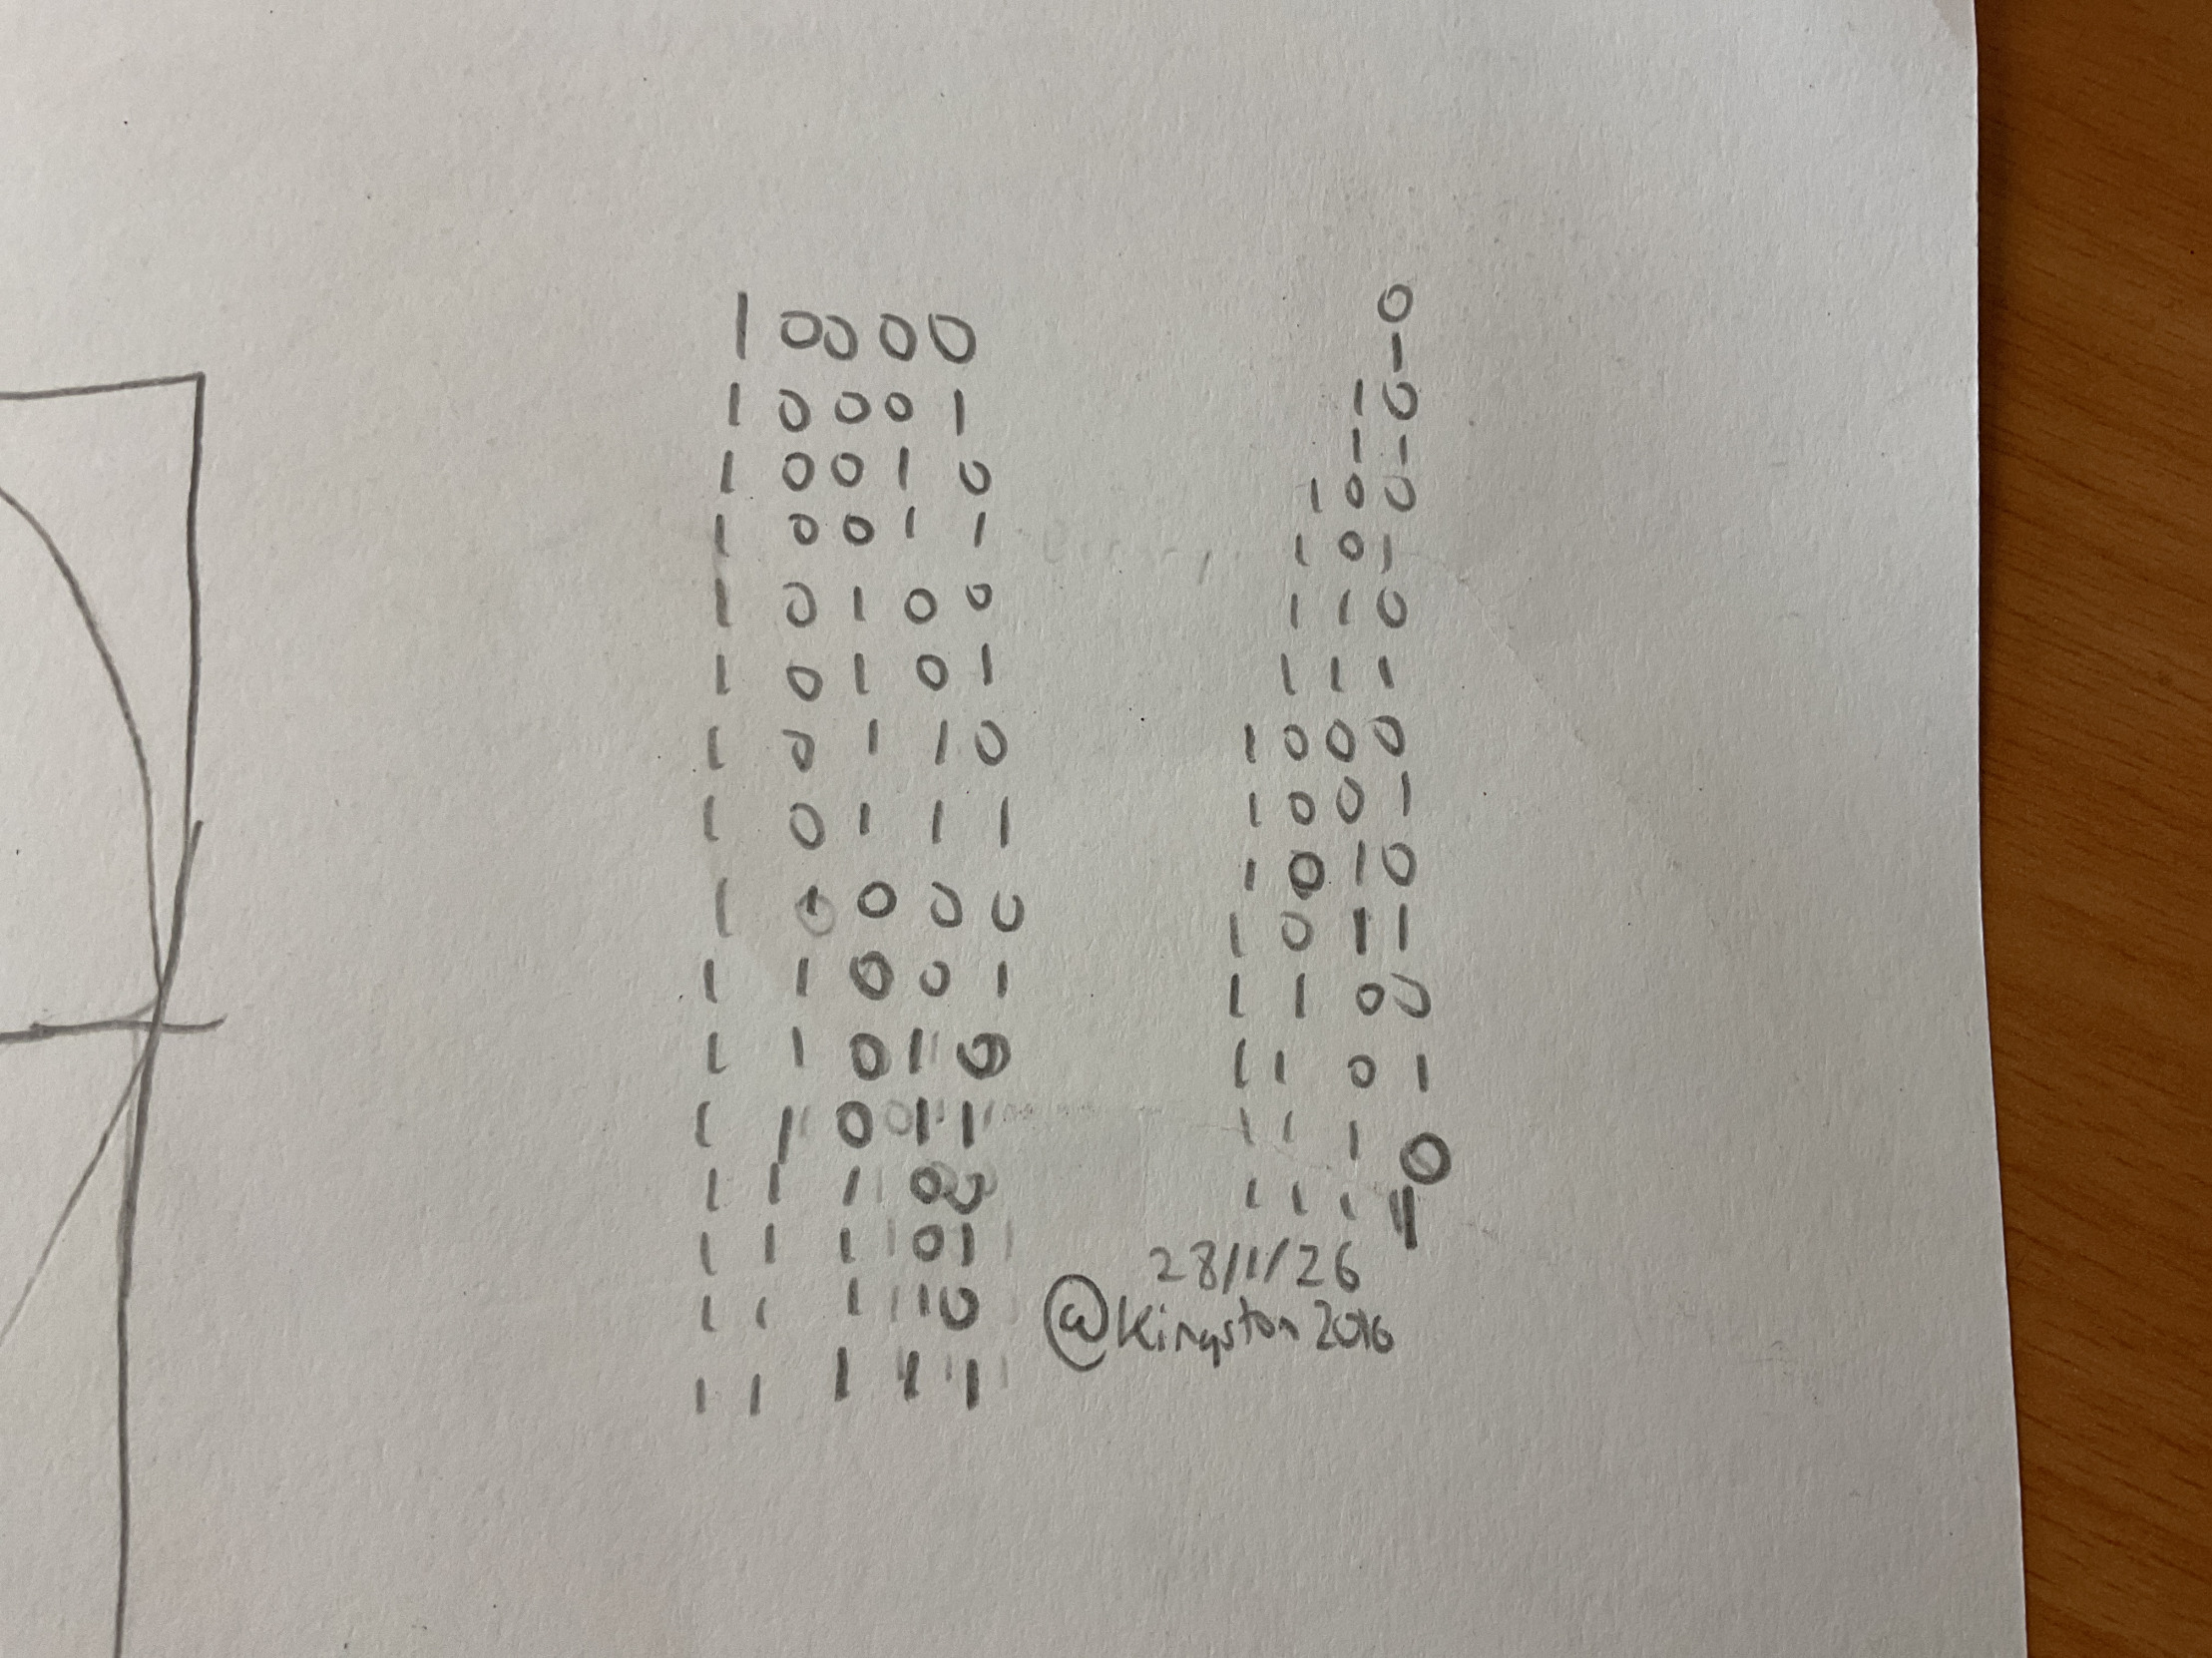 10000
10001
10010
10011
10100
10101
10110
10111
11000
11001
11010
11011
11100
11101
11110
11111
0
1
10
11
100
101
110
111
1000
1001
1010
1011
1100
1101
1110
1111
28/1/26
@Kingston2016